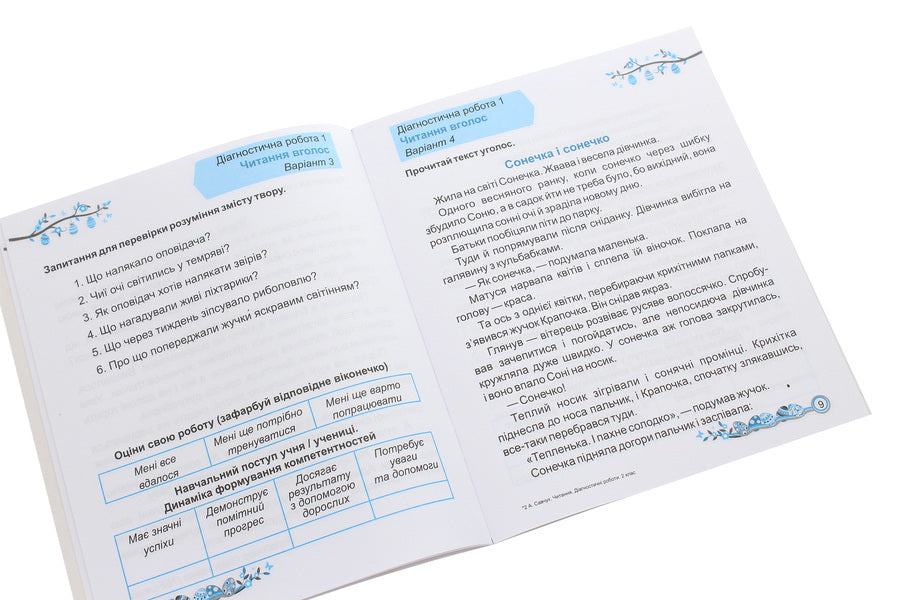 Діагностична робота 1
Читання вголос
Варіант 3
Запитання для перевірки розуміння змісту твору.
1. Що налякало оповідача?
2. Чиї очі світились у темряві?
3. Як оповідач хотів налякати звірів?
4. Що нагадували живі ліхтарики?
5. Що через тиждень зіпсувало риболовлю?
6. Про що попереджали жучки яскравим світінням?
Оціни свою роботу (зафарбуй відповідне віконечко)
Мені все вдалося
Мені ще потрібно тренуватися
Мені ще варто попрацювати
Навчальний поступ учня / учениці.
Динаміка формування компетентностей
Має значні успіхи
Демонструє помітний прогрес
Досягає результату з допомогою дорослих
Потребує уваги та допомоги
Діагностична робота 1
Читання вголос
Варіант 4
Прочитай текст уголос.
Сонечка і сонечко
Жила на світі Сонечка. Жвава і весела дівчинка.
Одного весняного ранку, коли сонечко через шибку
збудило Соню, а в садок йти не треба було, бо вихідний, вона
розплющила сонні очі й зраділа новому дню.
Батьки пообіцяли піти до парку.
Туди й попрямували після сніданку. Дівчинка вибігла на
галявину з кульбабками.
— Як сонечка, — подумала маленька.
Матуся нарвала квітів і сплела їй віночок. Поклала на
голову — краса.
Та ось з однієї квітки, перебираючи крихітними лапками,
з’явився жучок Крапочка. Він снідав якраз.
Глянув — вітерець розвіває русяве волоссячко. Спробу-
вав зачепитися і погойдатись, але непосидюча дівчинка
кружляла дуже швидко. У сонечка аж голова закрутилась,
і воно впало Соні на носик.
— Сонечко!
Теплий носик зігрівали і сонячні промінці. Крихітка
піднесла до носа пальчик, і Крапочка, спочатку злякавшись,
все-таки перебрався туди.
«Тепленька. І пахне солодко», — подумав жучок.
Сонечка підняла догори пальчик і заспівала:
9
*2 А. Савчук. Читання. Діагностичні роботи. 2 клас